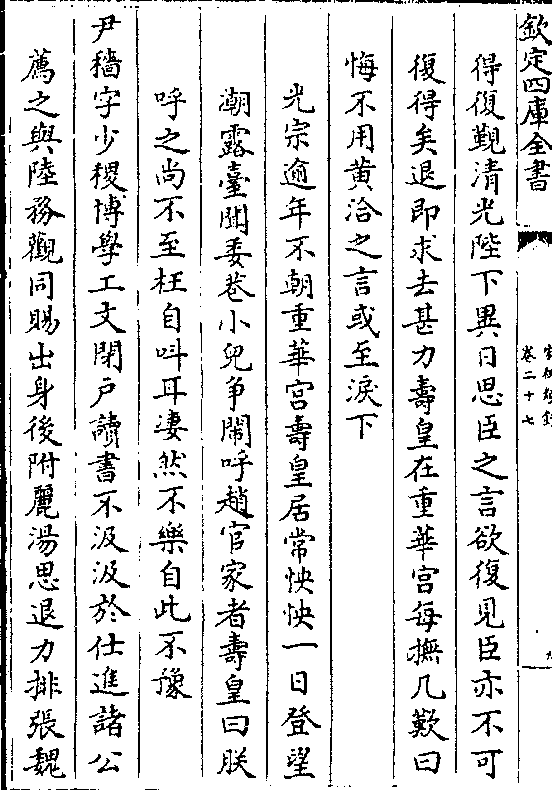 欽定四庫全書
卷二十七
得復覲清光陛下異日思臣之言欲復見臣亦不可
復得矣退即求去甚力壽皇在重華宫每撫几歎曰
悔不用黄洽之言或至淚下
光宗逾年不朝重華宫壽皇居常怏怏一日登望
潮露臺聞委巷小兒争鬧呼趙官家者壽皇曰朕
呼之尚不至枉自呌耳凄然不樂自此不豫
尹穡字少稷博學工文閉户讀書不汲汲於仕進諸公
薦之與陸務觀同賜出身後附麗湯思退力排張魏